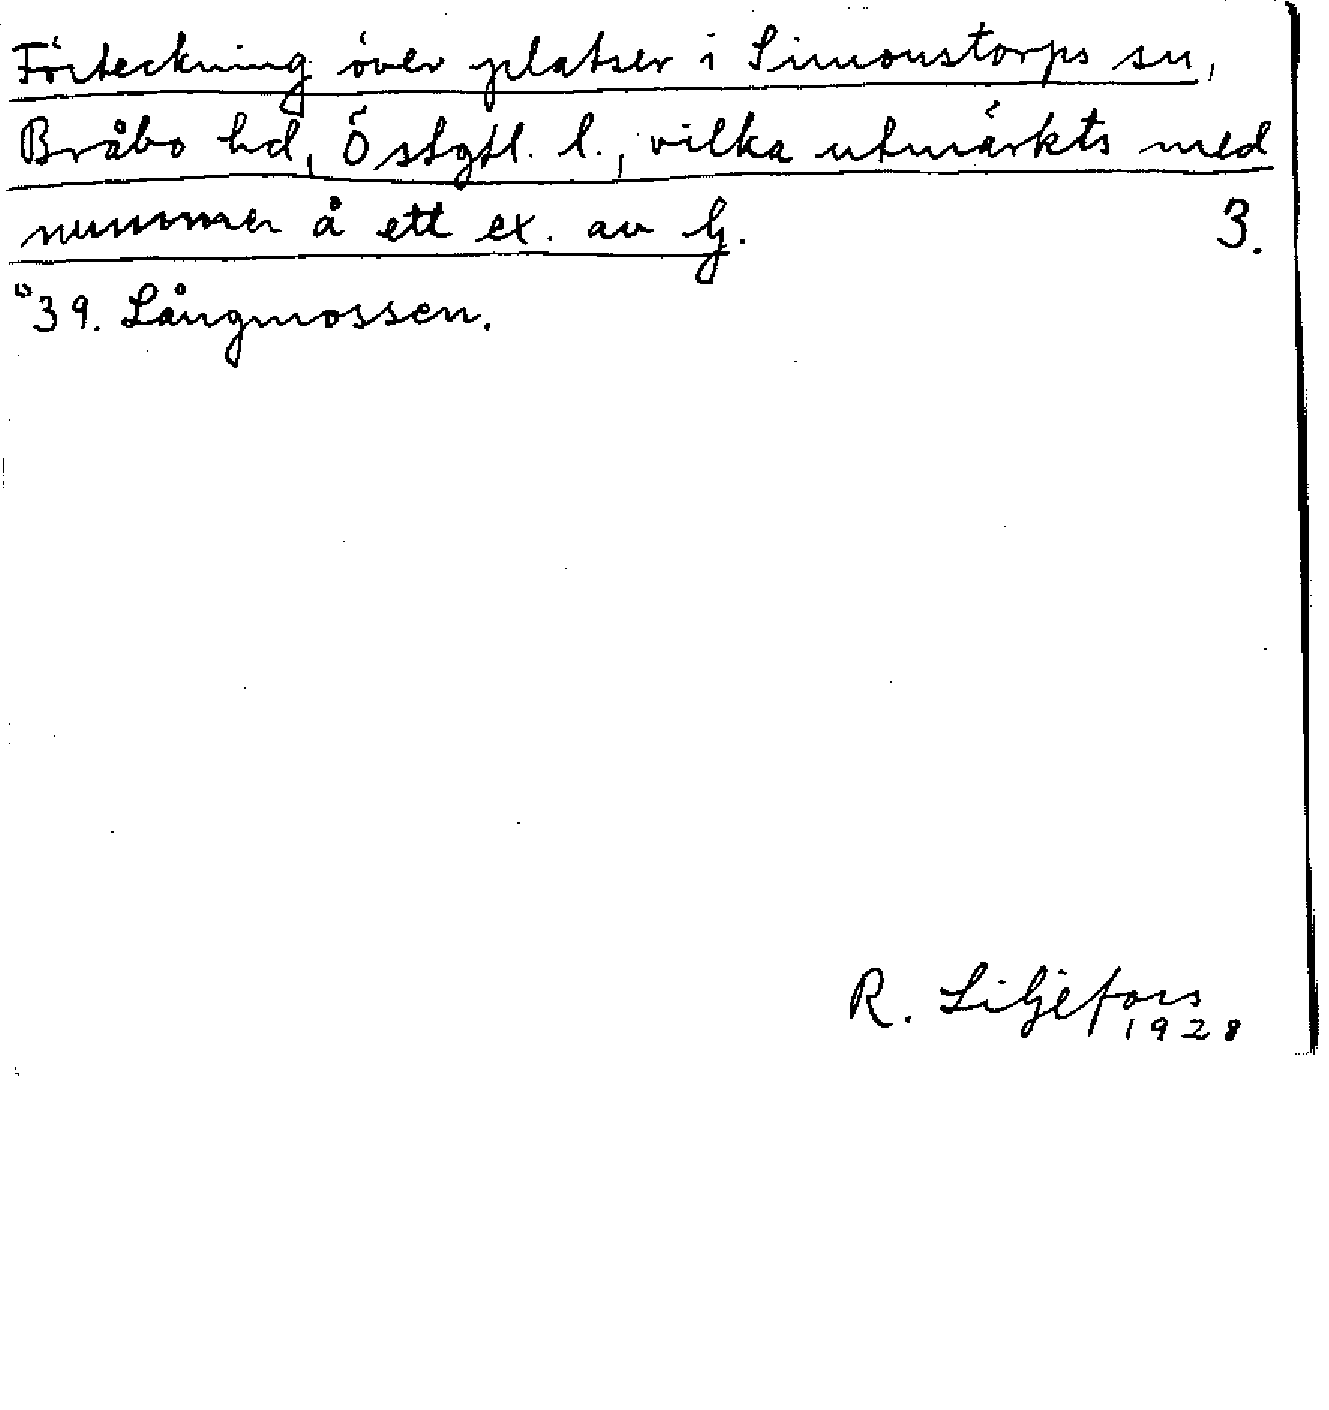 Förteckning över platser i Simonstorps sn,
Bråbo hd, Östgtl. l., vilka utmärkts med
nummer å ett ex. av G. 3.
39. Långmossen.
R. Liljefors
1928